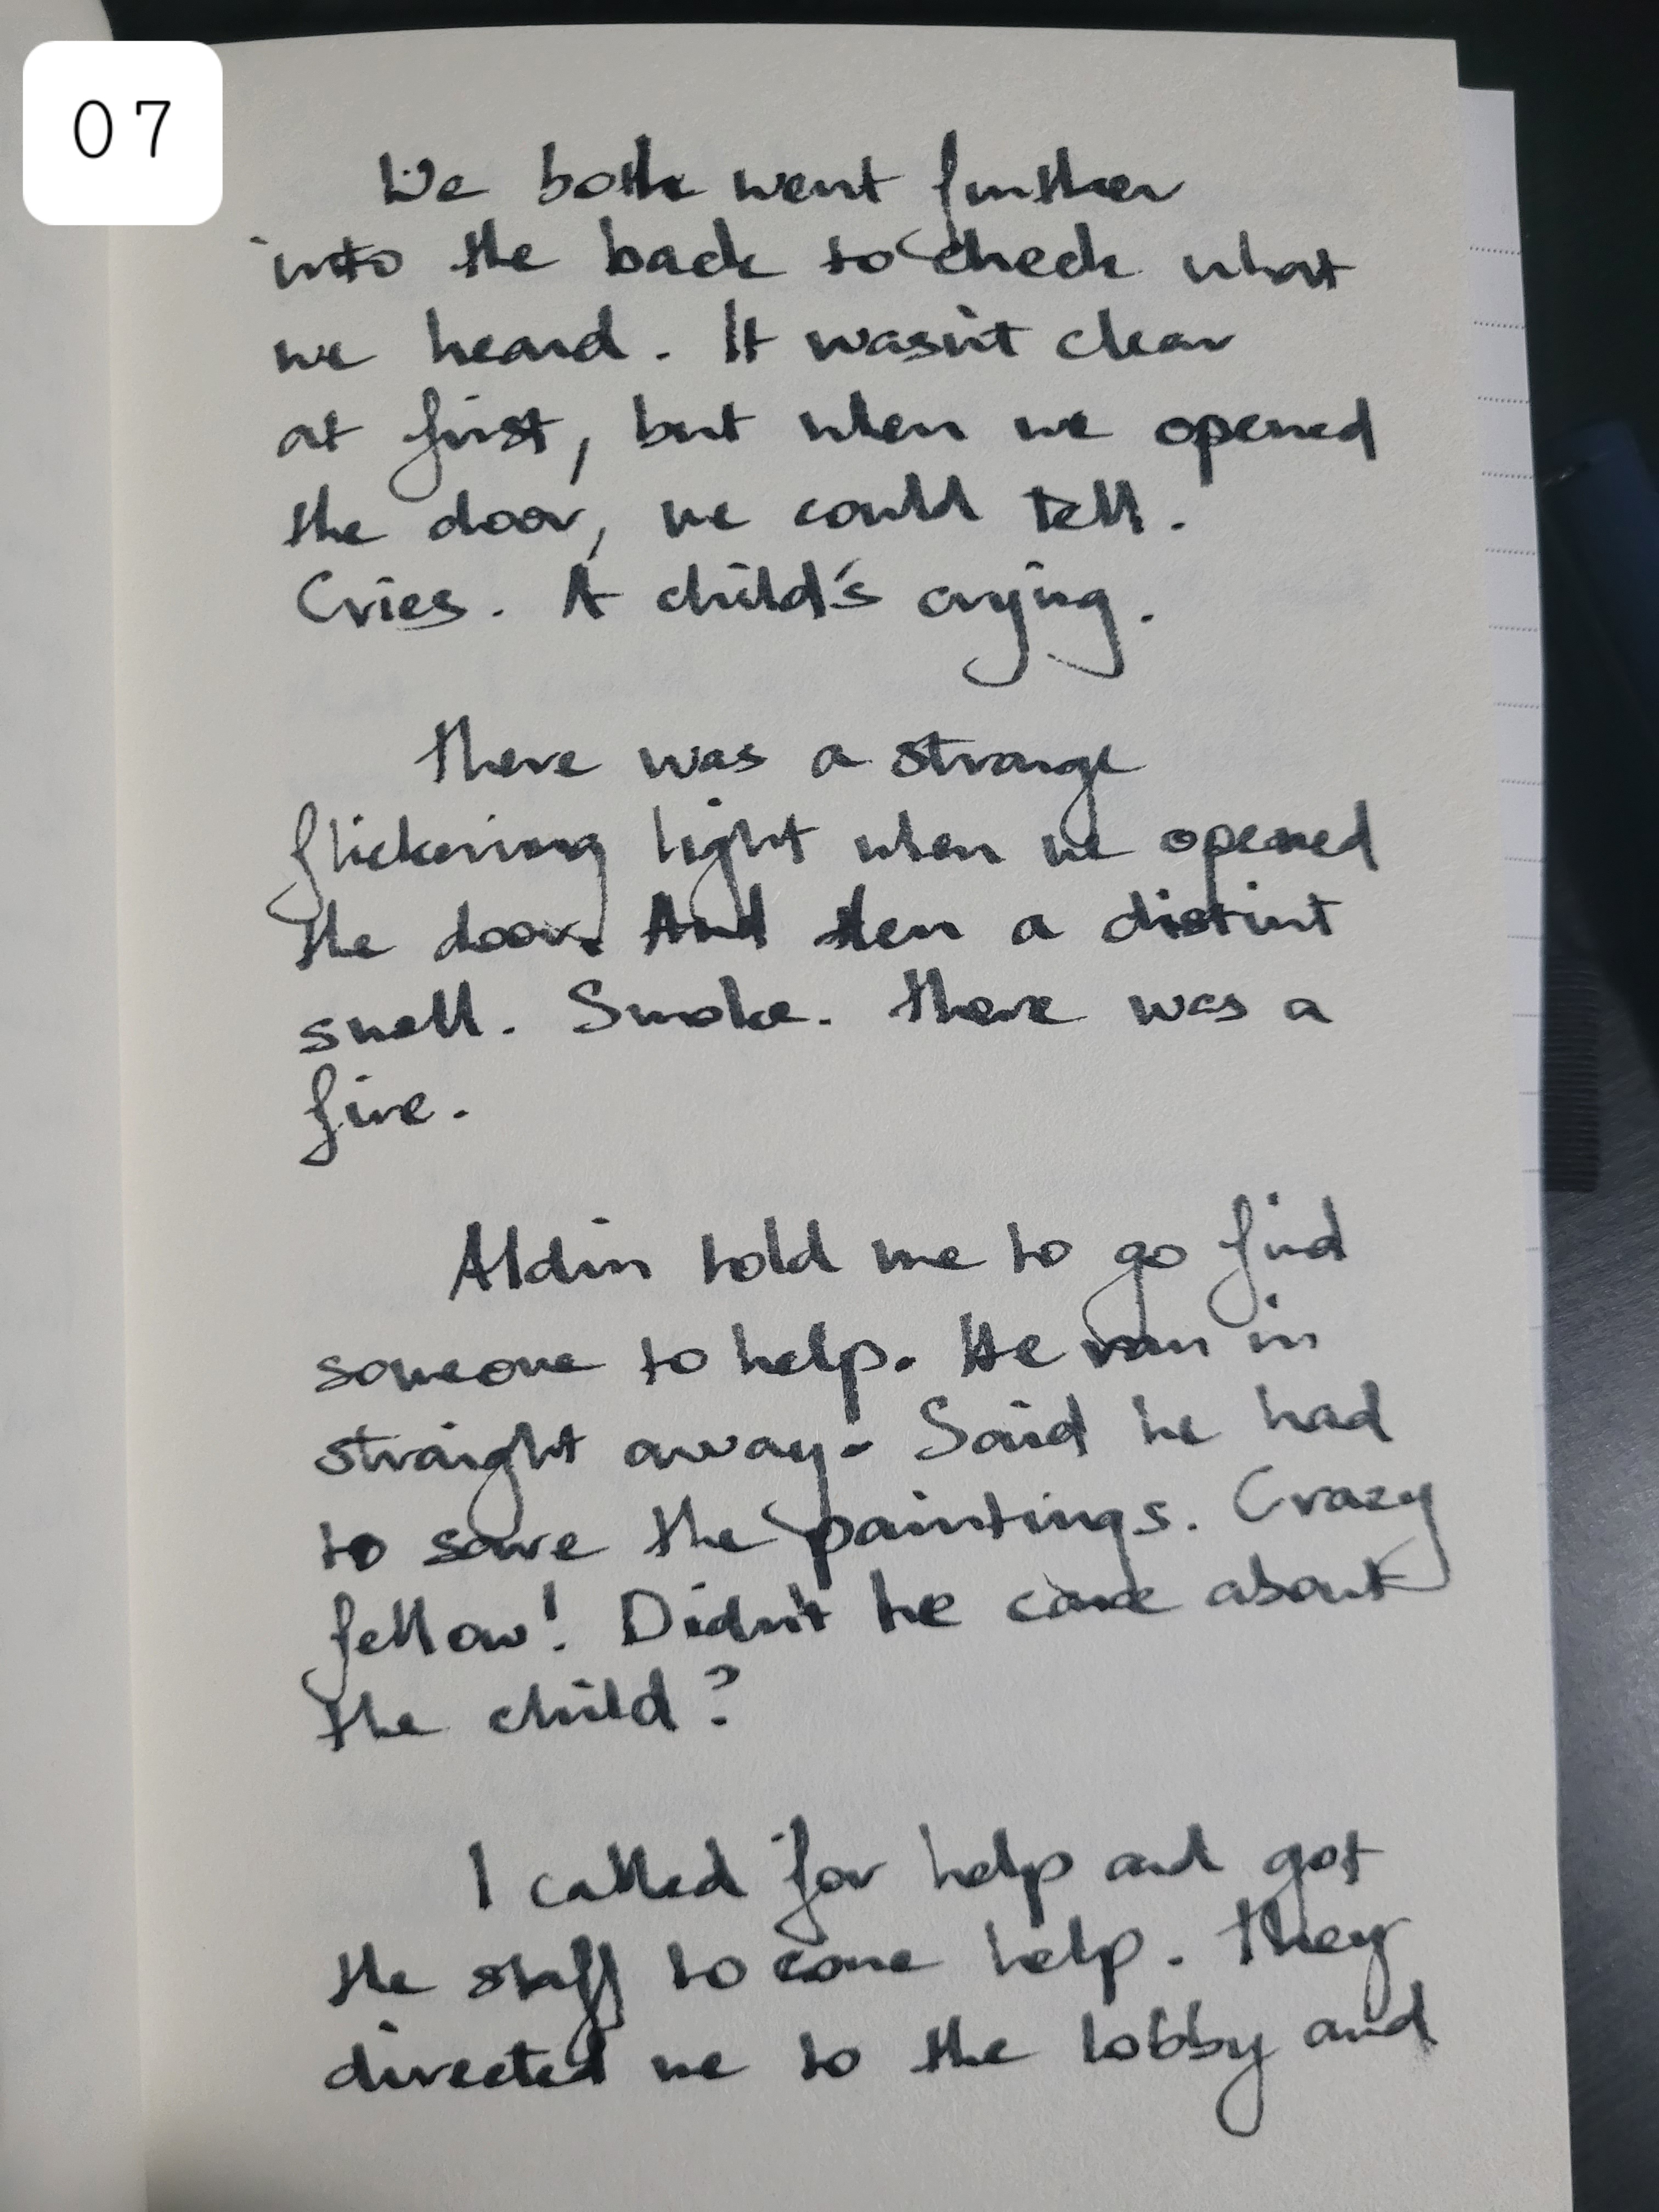 07
We both went further
into the back to check what
we heard. It wasn't clear
at first, but when we opened
the door, we could tell.
Cries. A child's crying.
There was a strange
flickering light when we opened
the door. And then a distint
smell. Smoke. There was a
fire.
Aldin told me to go find
someone to help. He ran in
straight away. Said he had
to save the paintings. Crazy
fellow! Didn't he care about
the child?
I called for help and got
the staff to come help. They
directed me to the lobby and